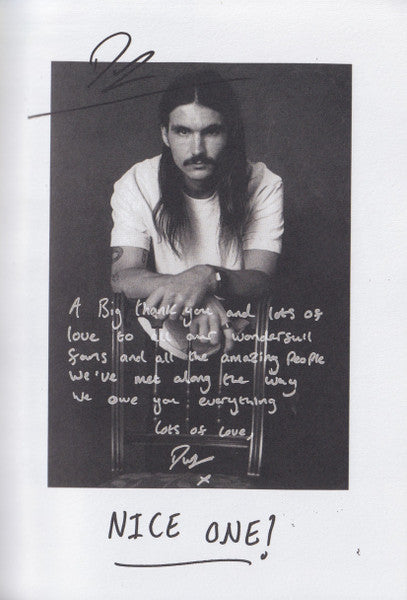 A Big thank you and lots of
love to all our wonderfull
fans and all the amazing People
We've met along the way
We owe you everything
Lots of Love,
x
NICE ONE!